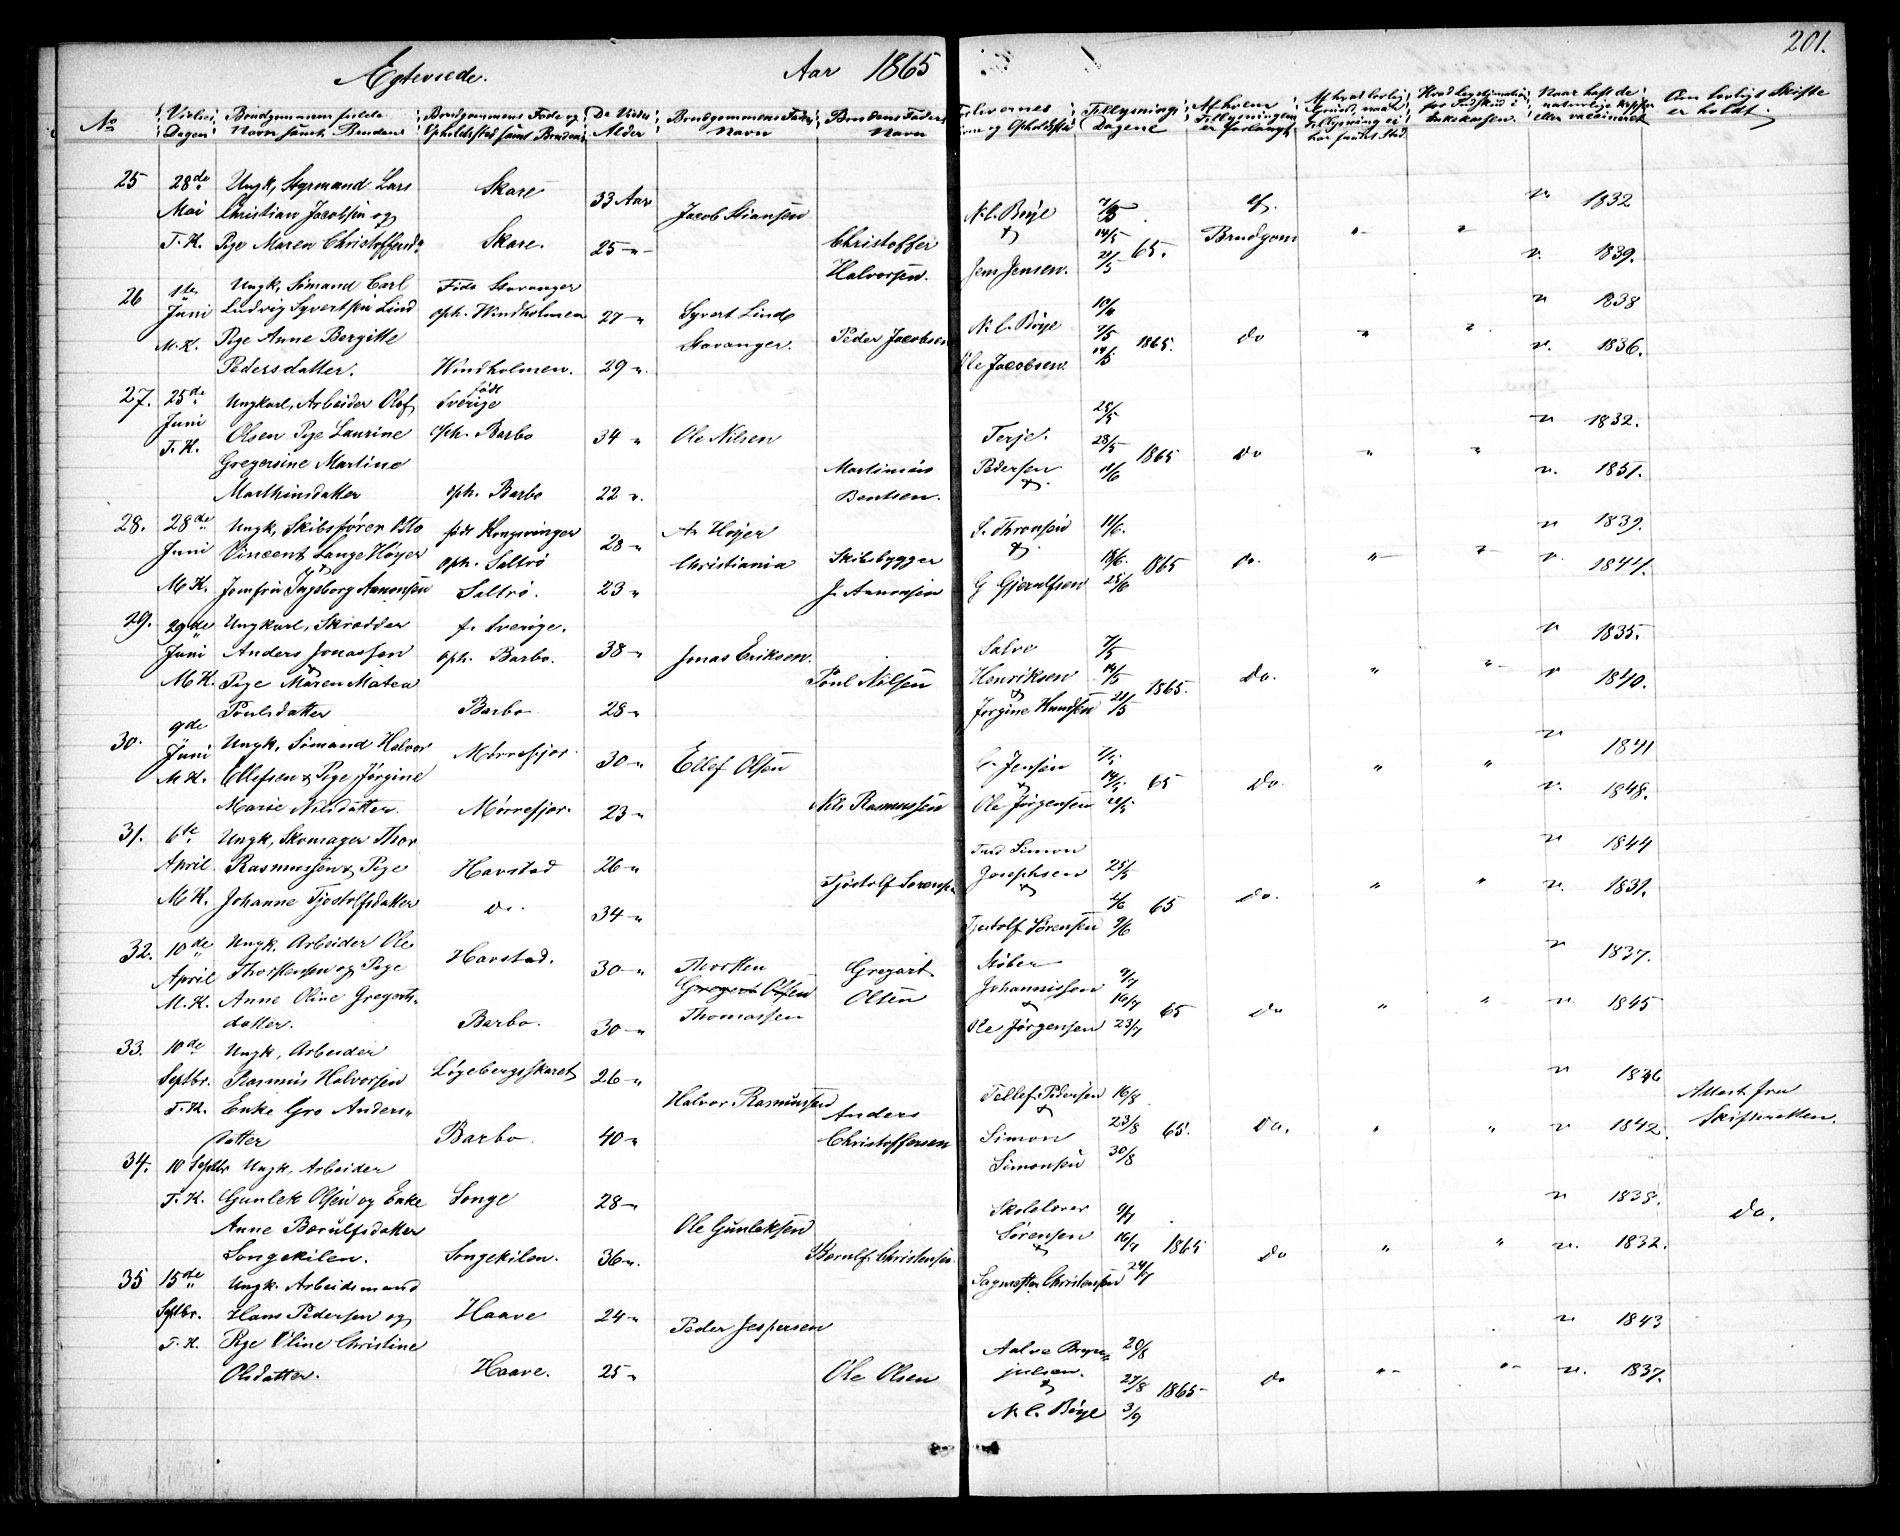 201.
Egteviede. Aar 1865
No
Vielses Dagen
Brudgommens fulde Navn samt Brudens
Brudgommens Føde og Opholdssted samt Brudens
De Viedes Alder
Brudgommens Faders Navn
Brudens Faders Navn
Forlovernes Navne og Opholdssted
Tillysnings Dagene
Af hvem Tillysningen er forlangt
Naar havt de naturlige Kopper eller vaccineret
Om lovligt Skifte er holdt
25 28de Ungk, Styrmand Lars Skare 33 Aar v. 1832
Mai Christian Jacobsen og Jacob Stiansen N. C. Bøye 7/5 af
T. K. Pige Maren Christoffersd. Skare. 25 " Christoffer 14/5 65. Brudgom " " v. 1839.
Halvorsen. Jens Jensen. 21/5
26 1ste Ungk, Sømand Carl Føde Stavanger v 1838
Juni Ludvig Syvertsen Lind oph. Windholmen 27 " Syvert Lind N. C. Bøye
M. K. Pige Anne Bergitte Stavanger. Peder Jacobsen 7/5 1865. do " " v. 1836.
Pedersdatter. Windholmen. 29 " Ole Jacobsen. 14/5
27. 25de Ungkarl, Arbeider Olof født Sverige v 1832.
Juni Olsen Pige Laurine oph. Barbo 34 " Ole Nilsen Terje
T. K. Gregersine Martine Martinius Pedersen 28/5 1865 do " " v. 1851.
Marthinsdatter oph. Barbo 22 " Bentsen. 11/6
28. 28de Ungk, Skibsfører Otto født Kongsvinger A. Høyer S. Thronsen 11/6. v 1839.
Juni Vincent Lange Høyer oph. Saltrø 28 " Christiania Skibsbygger & 18/6. 1865 do. " " v. 1844.
M. K. Jomfru Ingeborg Aanonsen Saltrø. 23 " J. Aanonsen G Gjerulfsen 25/6
29. 29de Ungkarl, Skrædder f. Sverige. v 1835.
Juni Anders Jonassen oph. Barbo. 38 " Jonas Eriksen. Salve 7/5
M. K. Pige Maren Matea Poul Nilsen Henriksen 14/5 1865. do. " " v 1840.
Poulsdatter Barbo 28 " Jørgine Knudsen 21/5
30. 9de Ungk, Sømand Halvor Mørrefjær 30 " Ellef Olsen v 1841
Juni Ellefsen & Pige Jørgine Jensen 14/5 65 do. " " v. 1848.
M. K. Marie Nilsdatter. Mørrefjær. 23 " Nils Rasmussen Ole Jørgensen
31. 6te Ungk, Skomager Thor v 1844
April Rasmussen & Pige Havstad 26 " Simon Josephsen 25/5
M. K. Johanne Tjøstolfsdatter do. 34 " Tjøstolf Sørensen 65 do. " " v. 1831.
Tjøstolf Sørensen 9/6
32. 10de Ungk. Arbeider Ole Havstad. 30 " Thorsten Gregert v 1837.
April Thorstensen og Pige Gregert Olsen Olsen Johannissen 9/7
M. K. Anne Oline Gregerts- Thomassen & 16/7 65 do " " v 1845
datter. Barbo. 30 " Ole Jørgensen 23/7
33. 10de Ungk, Arbeider Løgebergsskaret 26 " v 1836
Septbr. Rasmus Halvorsen Halvor Rasmussen Tellef Pedersen 16/8 Attest fra
T. K. Enke Gro Anders- Anders & 23/8 65. do. " " v 1842. Skifteretten.
datter Barbo. 40 " Christoffersen Simon Simonsen 30/8
34. 10 Septbr Ungk, Arbeider
T. K. Gunlek Olsen og Enke Songe 28 " Skolelærer 9/7 v 1838.
Anne Bærulfsdatter Ole Gunleksen Sørensen 16/7 1865 do " " v. 1832. do.
Songekilen. Songekilen. 36 " Bærulf Christensen Sagmester Christensen 24/7
35 15de Ungk. Arbeidsmand
Septbr. Hans Pedersen og Haave 24 " Peder Jespersen v 1843
T. K. Pige Oline Christine 20/8
Olsdatter. Haave. 25 " Ole Olsen & 27/8 1865 do " " v. 1837.
N. C. Bøye 3/9